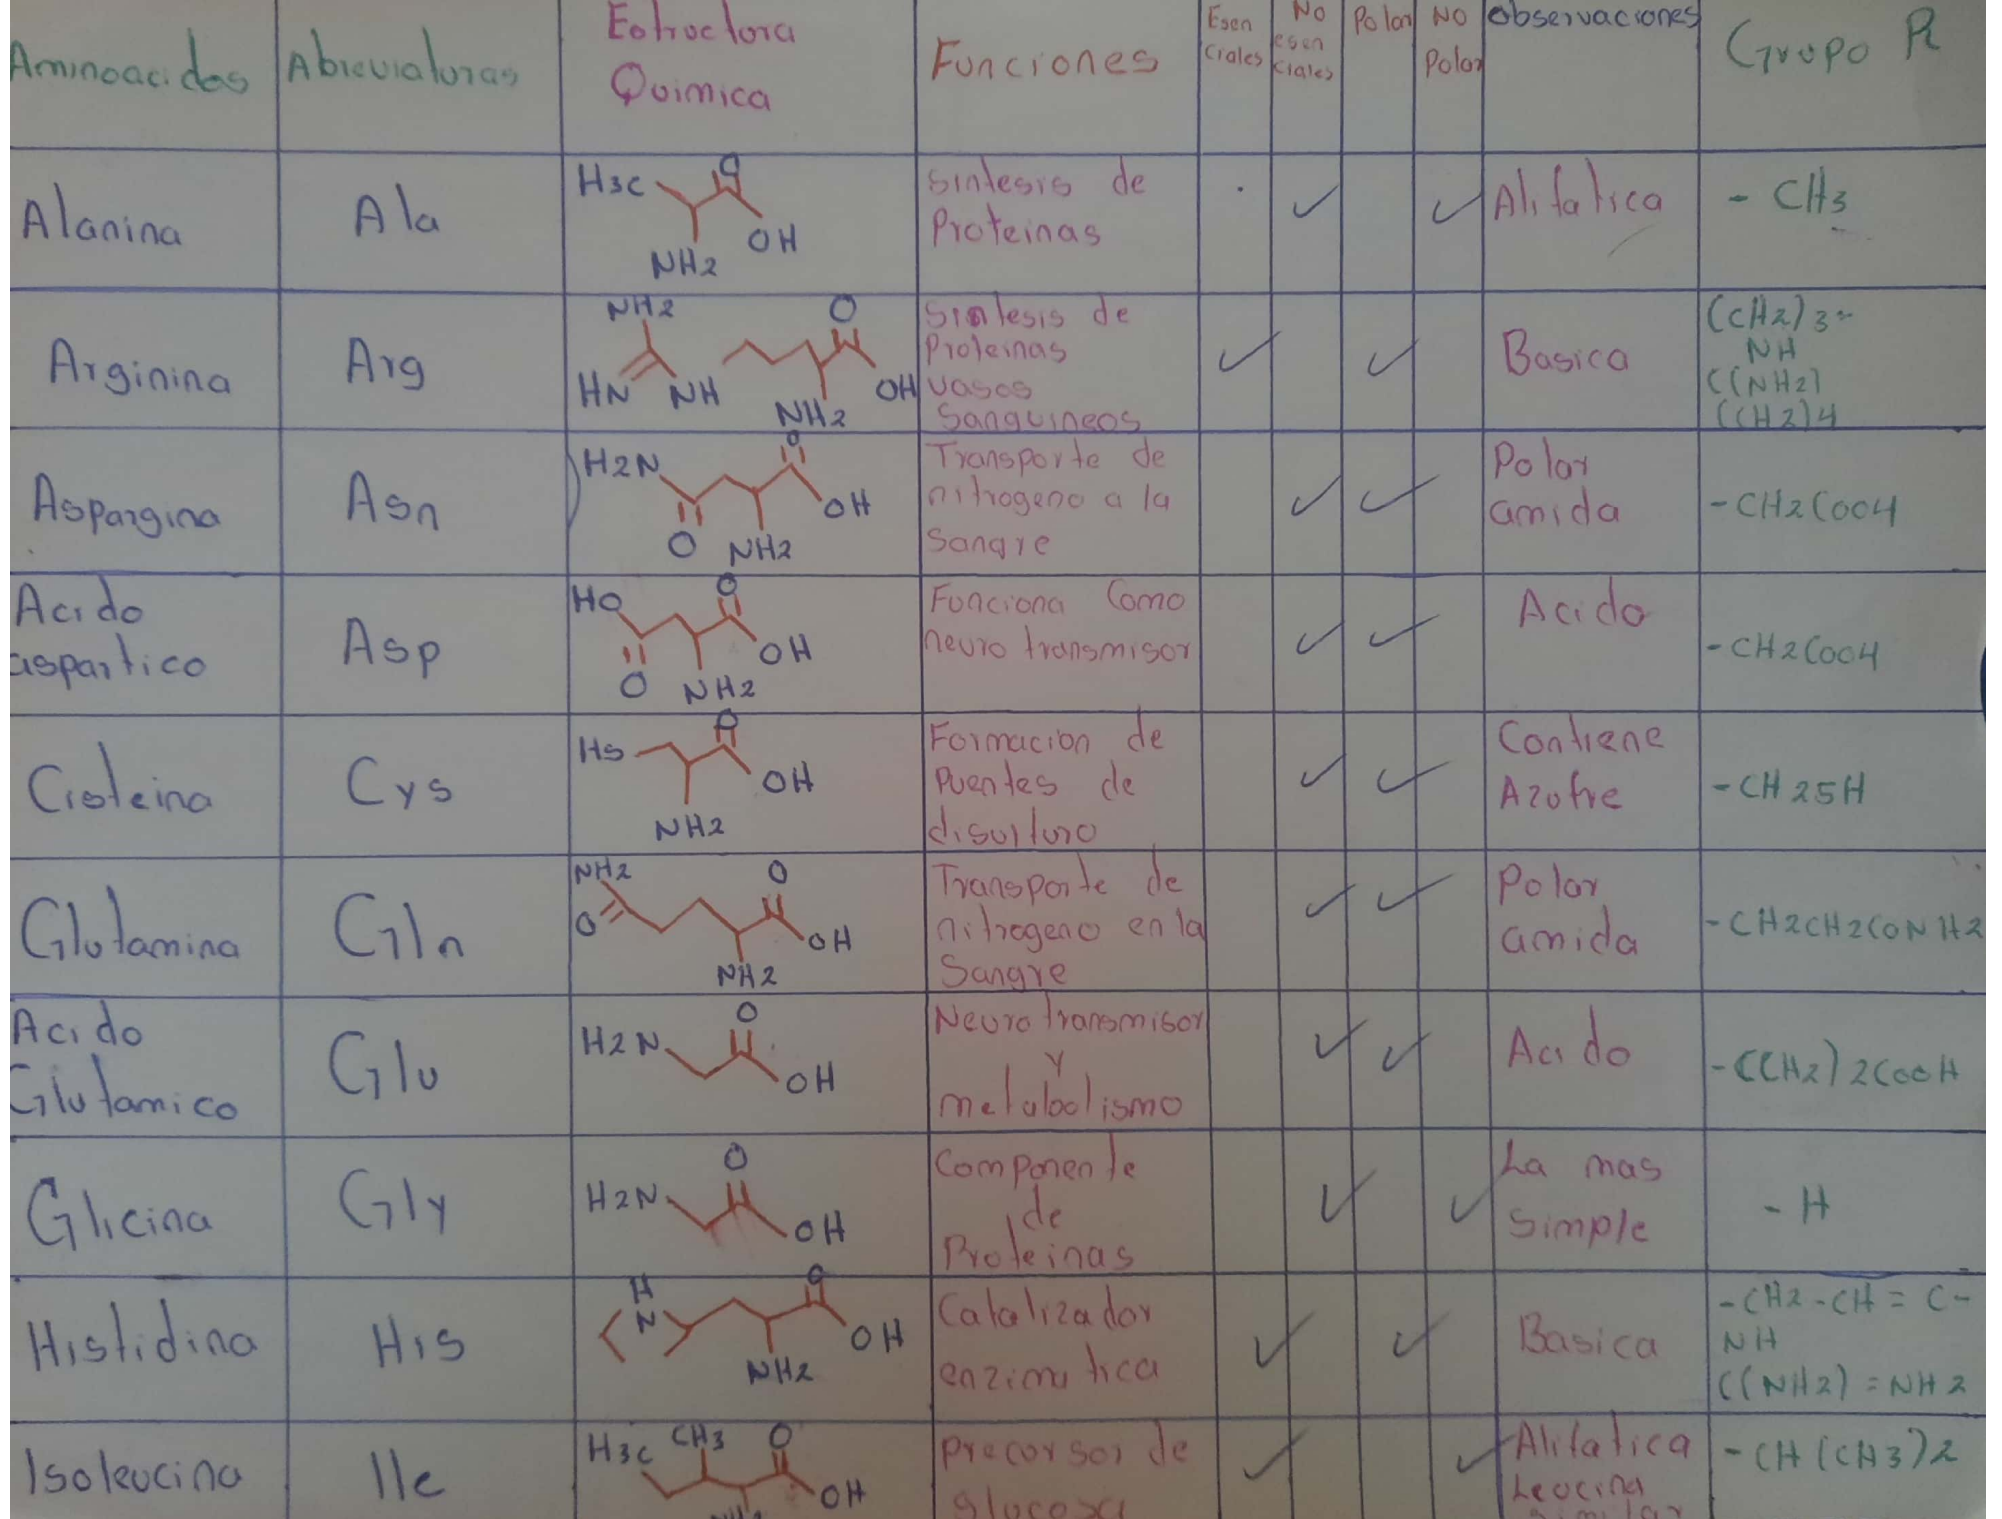 Aminoacidos
Abreviaturas
Estructura
Quimica
Funciones
Esen
ciales
No
esen
ciales
Polar
No
Polar
Observaciones
Grupo R
Alanina
Ala
H3C
O
OH
NH2
Sintesis de
Proteinas
Alifatica
- CH3
Arginina
Arg
NH2
O
HN NH
OH
NH2
Sintesis de
Proteinas
vasos
Sanguineos
Basica
(CH2)3-
NH
C(NH2)
((H2)4
Aspargina
Asn
H2N
O
OH
O NH2
Transporte de
nitrogeno a la
Sangre
Polar
amida
-CH2COO4
Acido
aspartico
Asp
HO
O
OH
O NH2
Funciona Como
neuro transmisor
Acido
-CH2COO4
Cisteina
Cys
HS
O
OH
NH2
Formacion de
Puentes de
disulfuro
Contiene
Azufre
-CH25H
Glutamina
Gln
NH2
O
O
OH
NH2
Transporte de
nitrogeno en la
Sangre
Polar
amida
-CH2CH2CONH2
Acido
Glutamico
Glu
O
H2N
OH
Neurotransmisor
y
metabolismo
Acido
-C(H2)2COOH
Glicina
Gly
O
H2N
OH
Componente
de
Proteinas
La mas
Simple
- H
Histidina
His
H
N
O
OH
NH2
Catalizador
enzimatica
Basica
-CH2-CH=C-
NH
C(NH2)=NH2
Isoleucina
Ile
H3C CH3 O
OH
Precursor de
glucosa
Alifatica
Leucina
similar
-CH(CH3)2